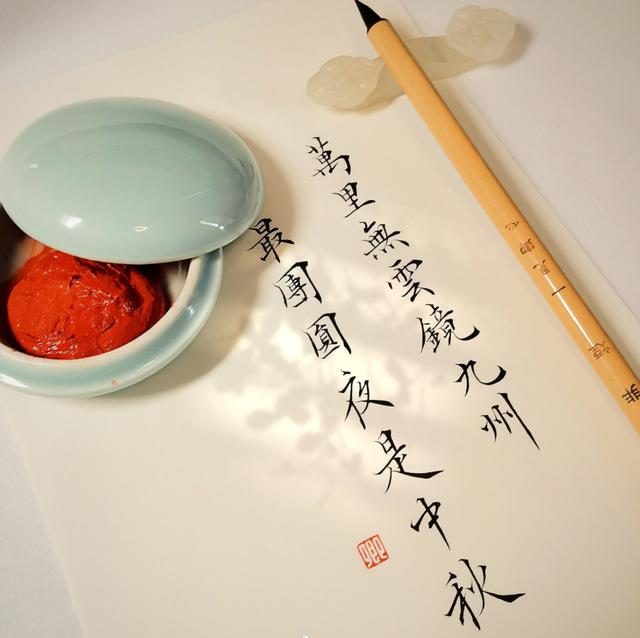 萬里無雲鏡九州
最團圓夜是中秋